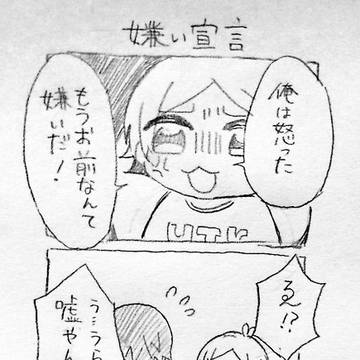 嫌い宣言
俺は怒った
もうお前なんて
嫌いだ！
UTK
え！？
う…うら
嘘やん